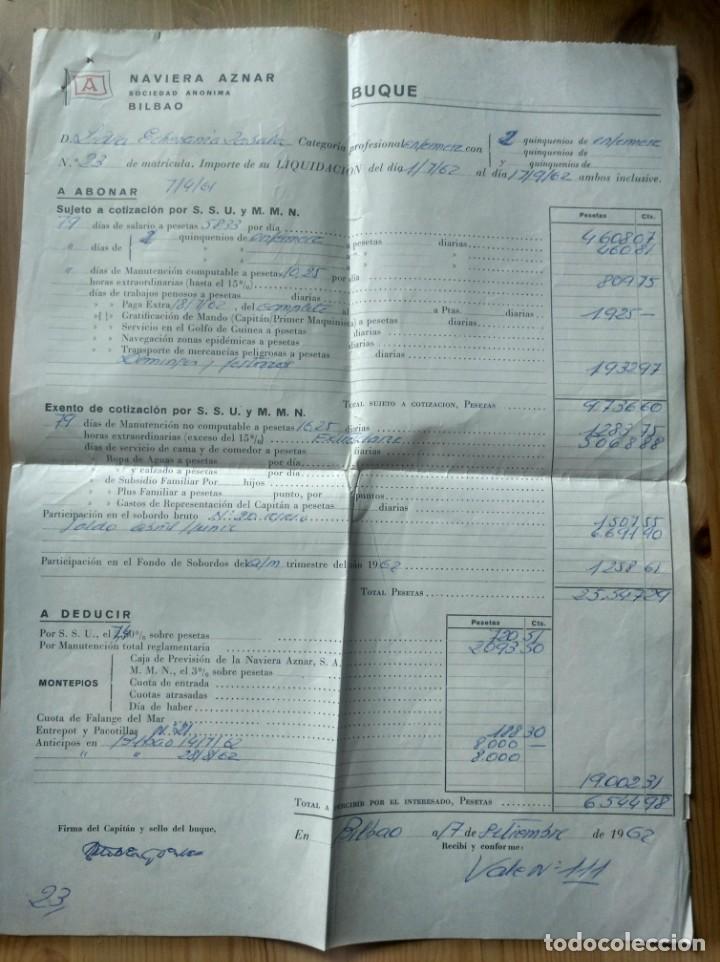 A
NAVIERA AZNAR
SOCIEDAD ANONIMA
BILBAO
BUQUE
D. Categoría profesional enfermera con 2 quinquenios de enfermera
quinquenios de
y quinquenios de
N.º 23 de matrícula. Importe de su LIQUIDACION del día 1/7/62 al día 17/9/62 ambos inclusive.
7/4/61
A ABONAR
Pesetas Cts.
Sujeto a cotización por S. S. U. y M. M. N.
79 días de salario a pesetas 5833 por día 460807
" días de 2 quinquenios de enfermera a pesetas diarias 46081
" " a " "
" " " "
" días de Manutención computable a pesetas 10,25 por día 80975
horas extraordinarias (hasta el 15%)
días de trabajos penosos a pesetas diarias
» » Paga Extra 18/7/62, del complete al a Ptas. diarias 1925 —
» Gratificación de Mando (Capitán/Primer Maquinista) a pesetas diarias
» » Servicio en el Golfo de Guinea a pesetas diarias
» » Navegación zonas epidémicas a pesetas
» » Transporte de mercancías peligrosas a pesetas diarias
Domingos y festivos 193297
TOTAL SUJETO A COTIZACION, PESETAS 973660
Exento de cotización por S. S. U. y M. M. N.
79 días de Manutención no computable a pesetas 16,25 diarias 128375
horas extraordinarias (exceso del 15%) 506888
días de servicio de cama y de comedor a pesetas diarias
» » Ropa de Aguas a pesetas por día
» » y calzado a pesetas por día
» de Subsidio Familiar Por hijos
» » Plus Familiar a pesetas punto, por puntos
» » Gastos de Representación del Capitán a pesetas diarias
Participación en el sobordo bruto 150755
669190
Participación en el Fondo de Sobordos del trimestre del año 1962 125861
TOTAL PESETAS 2554729
A DEDUCIR
Pesetas Cts.
Por S. S. U., el % sobre pesetas 720 51
Por Manutención total reglamentaria 2093 50
MONTEPIOS
Caja de Previsión de la Naviera Aznar, S. A.
M. M. N., el 3% sobre pesetas
Cuota de entrada
Cuotas atrasadas
Día de haber
Cuota de Falange del Mar
Entrepot y Pacotillas 188 30
Anticipos en Bilbao 14/7/62 8.000 —
" " 28/8/62 8.000
1900231
TOTAL A PERCIBIR POR EL INTERESADO, PESETAS 654498
En Bilbao a 17 de Setiembre de 1962
Firma del Capitán y sello del buque,
Recibí y conforme:
Vale Nº 111
23
todocoleccion.net